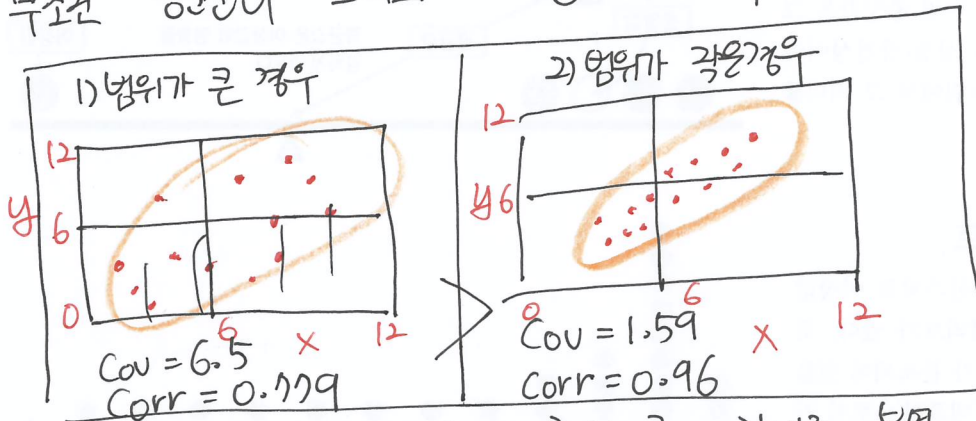 1) 범위가 큰 경우
12
y
6
0
6
x
12
Cov = 6.5
Corr = 0.779
>
2) 범위가 작은경우
12
y 6
0
6
x
12
Cov = 1.59
Corr = 0.96